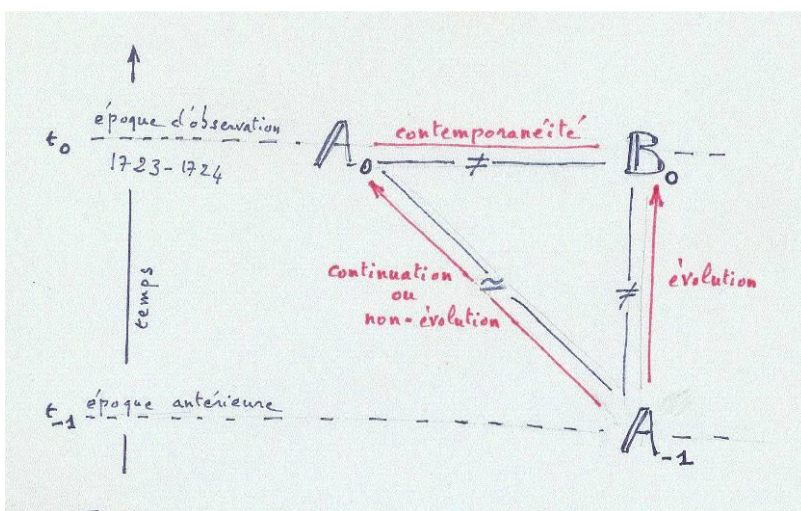 t₀ époque d'observation
1723-1724
A₀ contemporanéité B₀
≠
continuation
ou
non-évolution
≃
≠
évolution
temps
t₋₁ époque antérieure
A₋₁